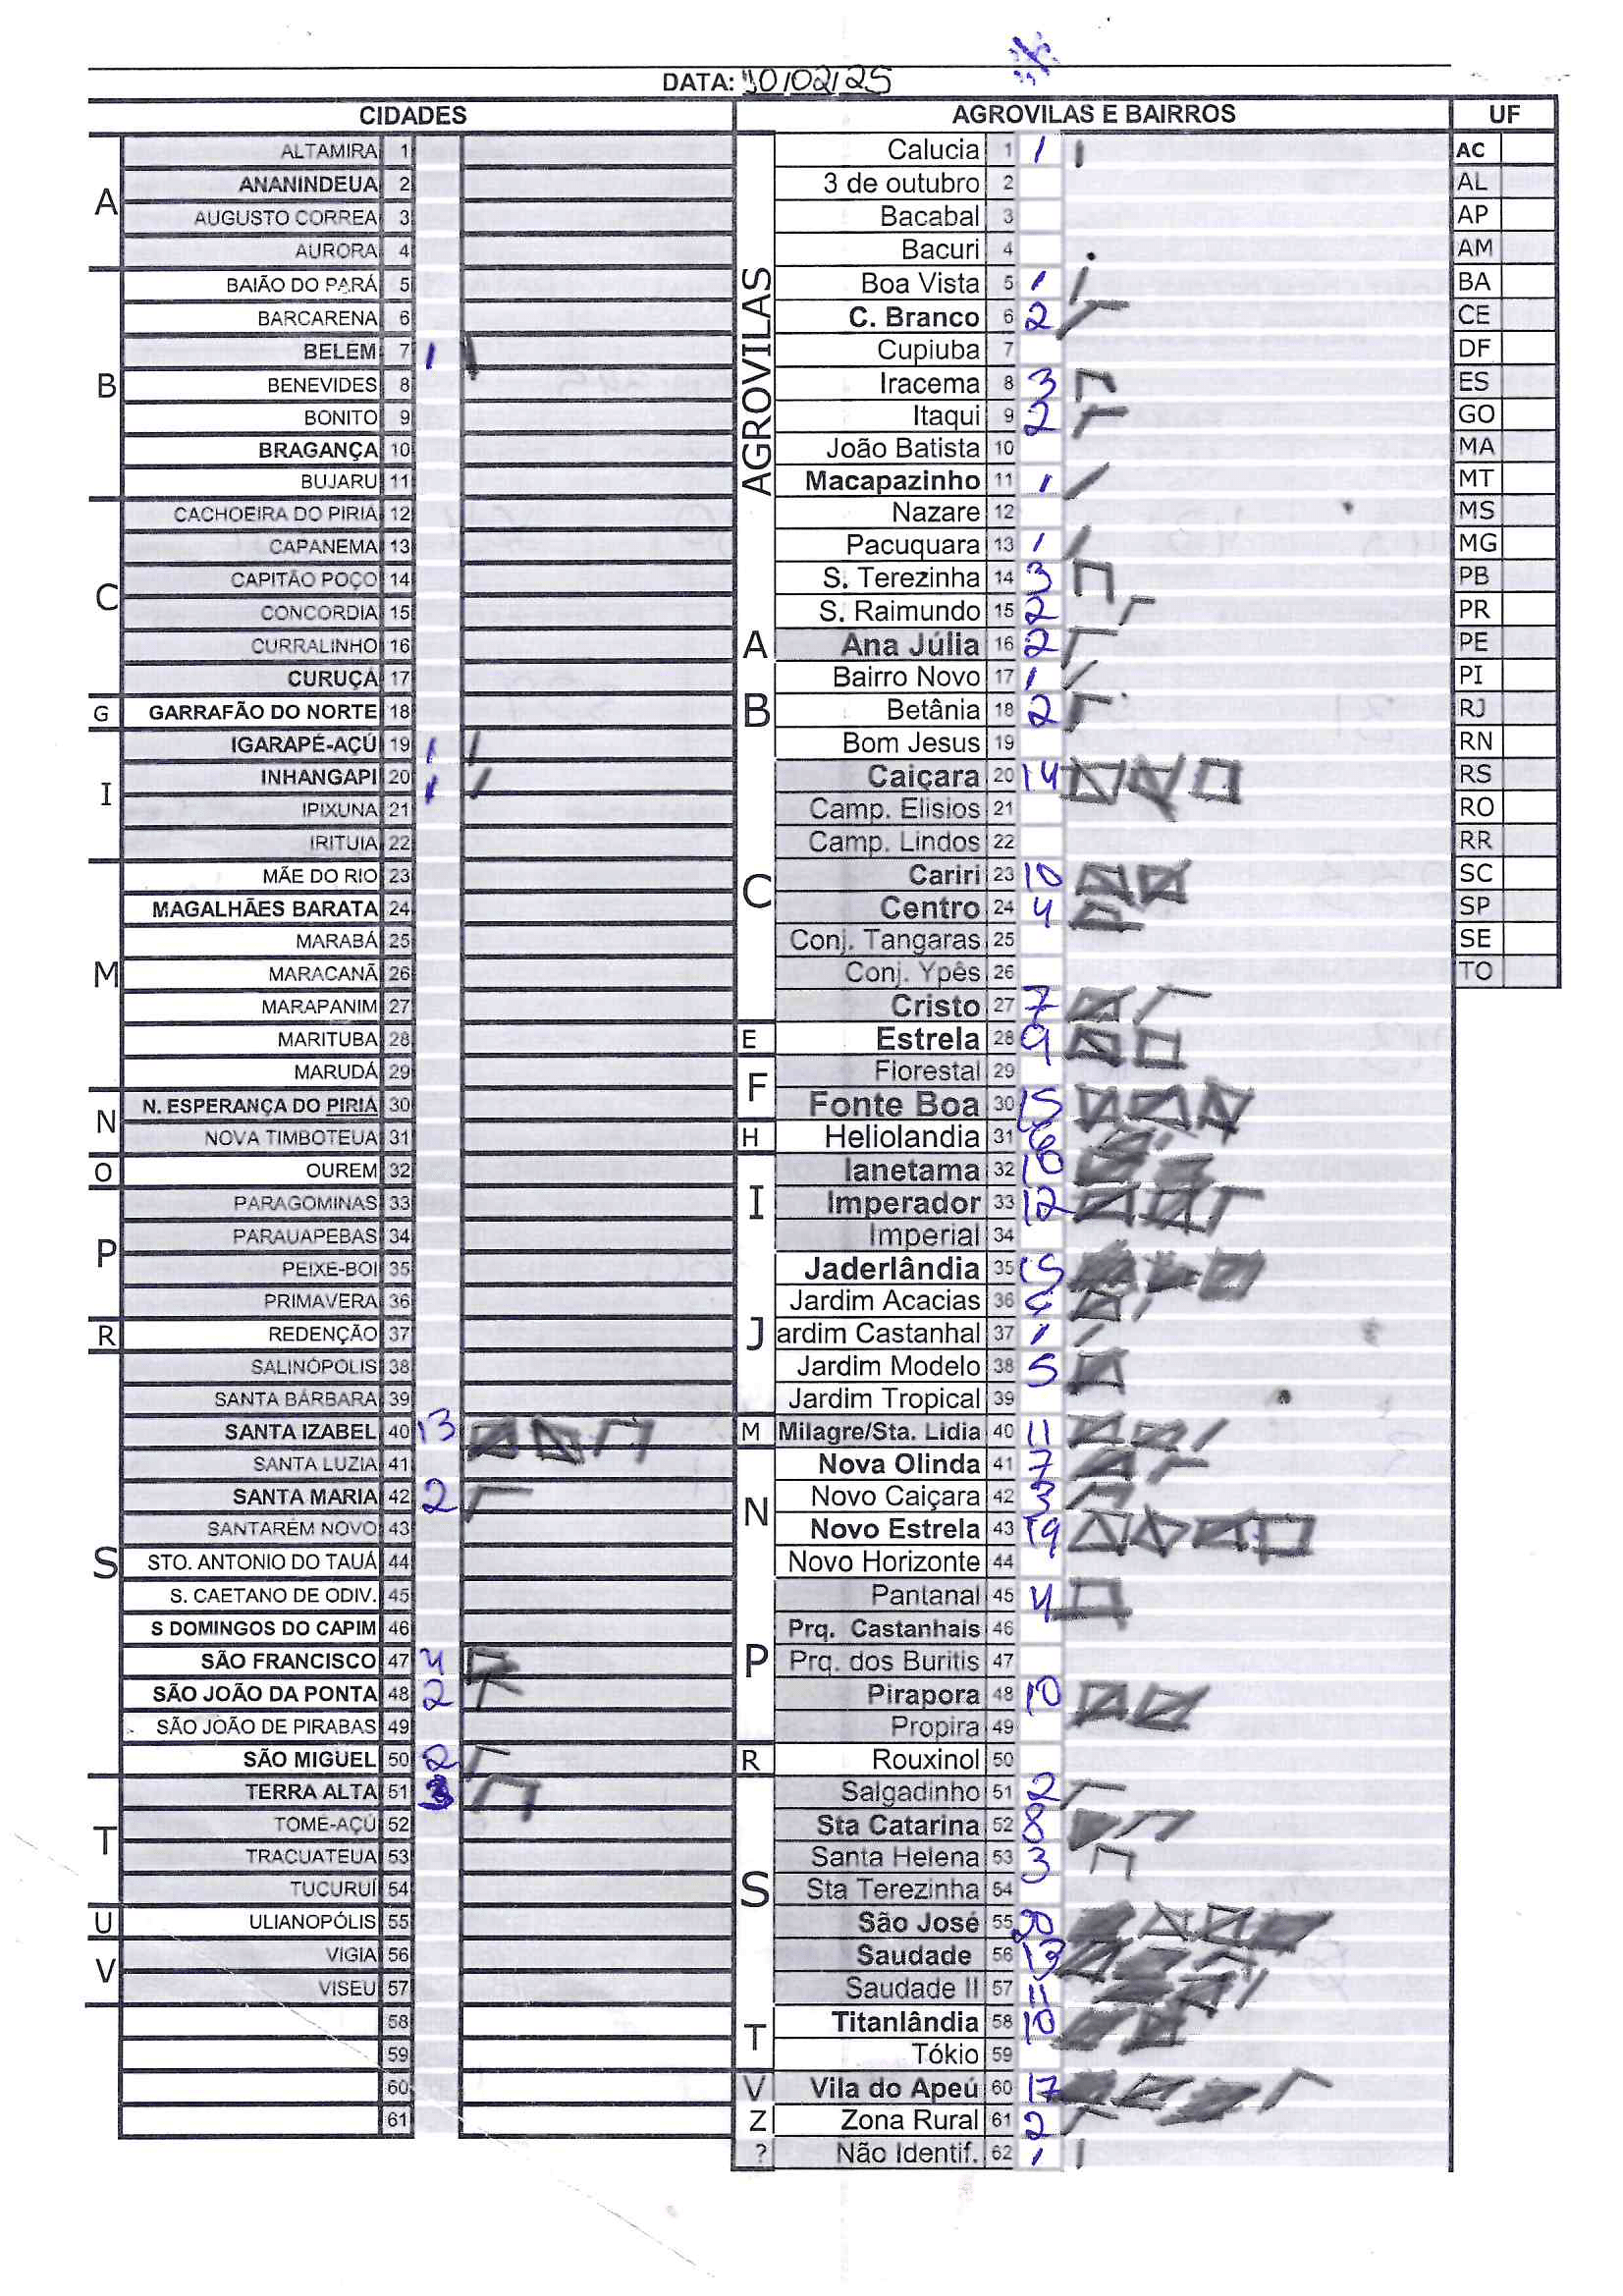 DATA: 10/02/25
CIDADES
AGROVILAS E BAIRROS
UF
A
ALTAMIRA 1
ANANINDEUA 2
AUGUSTO CORREA 3
AURORA 4
B
BAIÃO DO PARÁ 5
BARCARENA 6
BELÉM 7 1
BENEVIDES 8
BONITO 9
BRAGANÇA 10
BUJARU 11
C
CACHOEIRA DO PIRIÁ 12
CAPANEMA 13
CAPITÃO POÇO 14
CONCORDIA 15
CURRALINHO 16
CURUÇÁ 17
G
GARRAFÃO DO NORTE 18
I
IGARAPÉ-AÇÚ 19 1
INHANGAPI 20 1
IPIXUNA 21
IRITUIA 22
M
MÃE DO RIO 23
MAGALHÃES BARATA 24
MARABÁ 25
MARACANÃ 26
MARAPANIM 27
MARITUBA 28
MARUDÁ 29
N
N. ESPERANÇA DO PIRIÁ 30
NOVA TIMBOTEUA 31
O
OUREM 32
P
PARAGOMINAS 33
PARAUAPEBAS 34
PEIXE-BOI 35
PRIMAVERA 36
R
REDENÇÃO 37
S
SALINÓPOLIS 38
SANTA BÁRBARA 39
SANTA IZABEL 40 13
SANTA LUZIA 41
SANTA MARIA 42 2
SANTARÉM NOVO 43
STO. ANTONIO DO TAUÁ 44
S. CAETANO DE ODIV. 45
S DOMINGOS DO CAPIM 46
SÃO FRANCISCO 47 4
SÃO JOÃO DA PONTA 48 2
SÃO JOÃO DE PIRABAS 49
SÃO MIGUEL 50 2
T
TERRA ALTA 51 3
TOMÉ-AÇÚ 52
TRACUATEUA 53
TUCURUÍ 54
U
ULIANOPÓLIS 55
V
VIGIA 56
VISEU 57
58
59
60
61
AGROVILAS
Calucia 1 1
3 de outubro 2
Bacabal 3
Bacuri 4
Boa Vista 5 1
C. Branco 6 2
Cupiuba 7
Iracema 8 3
Itaqui 9 2
João Batista 10
Macapazinho 11 1
Nazare 12
Pacuquara 13 1
S. Terezinha 14 3
S. Raimundo 15 2
A
Ana Júlia 16 2
B
Bairro Novo 17 1
Betânia 18 2
Bom Jesus 19
C
Caiçara 20 14
Camp. Elisios 21
Camp. Lindos 22
Cariri 23 10
Centro 24 4
Conj. Tangaras 25
Conj. Ypês 26
Cristo 27 7
E
Estrela 28 9
F
Florestal 29
Fonte Boa 30 15
H
Heliolandia 31 6
I
Ianetama 32 10
Imperador 33 12
Imperial 34
J
Jaderlândia 35 15
Jardim Acacias 36 6
ardim Castanhal 37 1
Jardim Modelo 38 5
Jardim Tropical 39
M
Milagre/Sta. Lidia 40 11
N
Nova Olinda 41 7
Novo Caiçara 42 3
Novo Estrela 43 19
Novo Horizonte 44
P
Pantanal 45 4
Prq. Castanhais 46
Prq. dos Buritis 47
Pirapora 48 10
Propira 49
R
Rouxinol 50
S
Salgadinho 51 2
Sta Catarina 52 8
Santa Helena 53 3
Sta Terezinha 54
São José 55 20
Saudade 56 13
Saudade II 57 11
T
Titanlândia 58 10
Tókio 59
V
Vila do Apeú 60 17
Z
Zona Rural 61 2
?
Não Identif. 62 1
AC
AL
AP
AM
BA
CE
DF
ES
GO
MA
MT
MS
MG
PB
PR
PE
PI
RJ
RN
RS
RO
RR
SC
SP
SE
TO